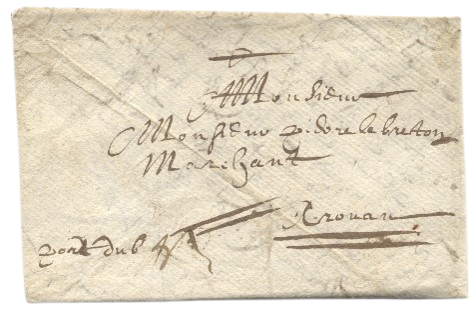 Monsieur
Monsieur piere le breton
Marchant
A rouan
port du b